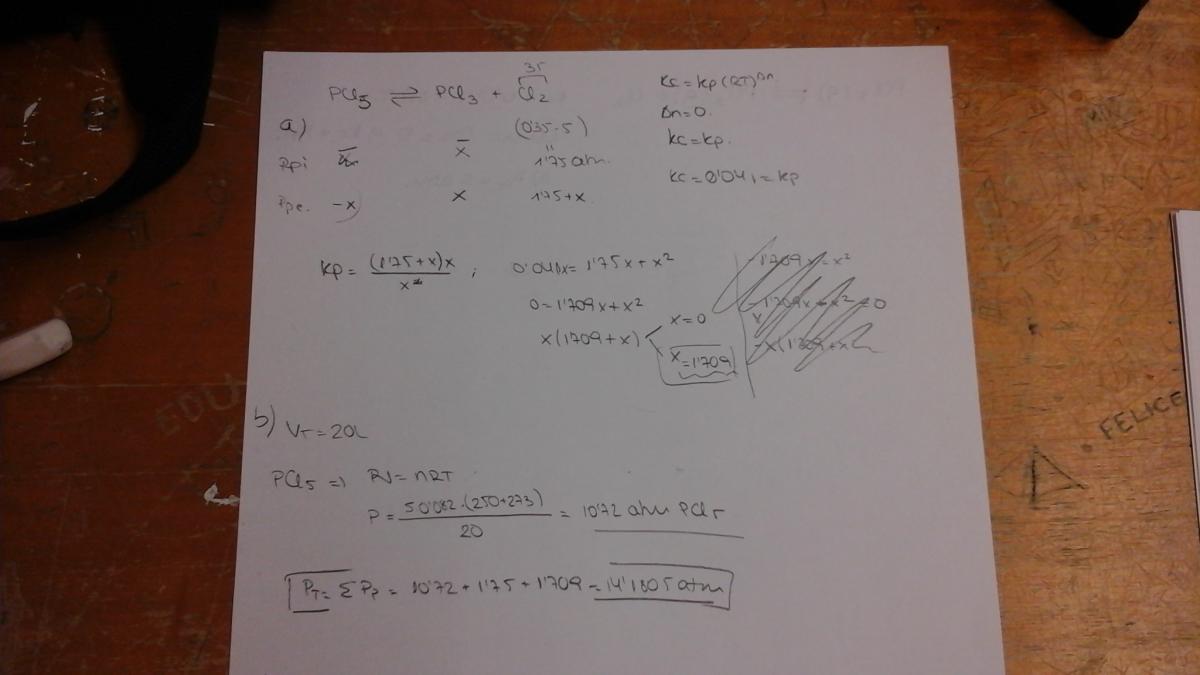 35
PCl5 ⇌ PCl3 + Cl2
Kc = Kp (RT)^Δn
Δn = 0.
Kc = Kp.
Kc = 0'041 = Kp
a) (0'35·5)
Ppi — x̄ 1'75 atm.
Ppe. -x x 1'75+x
Kp = (1'75+x)x / x ; 0'041x = 1'75x + x²
0 = 1'709x + x²
x(1'709+x) x=0
x=1'709
-1'709x = x²
-1'709x - x² = 0
b) VT = 20L
PCl5 ⇒ PV = nRT
P = 5·0'082·(250+273) / 20 = 10'72 atm PCl5
PT = Σ Pp = 10'72 + 1'75 + 1'709 = 14'1805 atm
EDU
FELICE